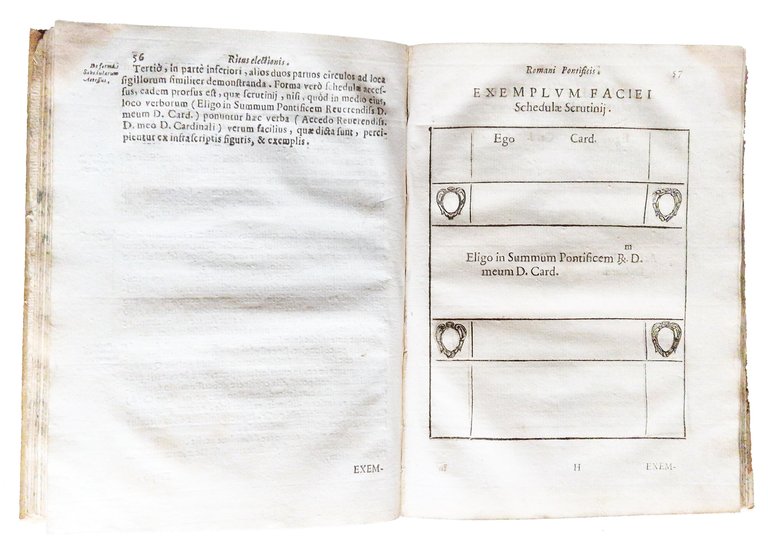 56
Ritus electionis.
De forma
Schedularum
Accessus.
Tertiò, in parte inferiori, alios duos paruos circulos ad loca
sigillorum similiter demonstranda. Forma verò schedulæ acces-
sus, eadem prorsus est, quæ scrutinij, nisi, quòd in medio eius,
loco verborum (Eligo in Summum Pontificem Reuerendiss. D.
meum D. Card.) ponuntur hæc verba (Accedo Reuerendiss.
D. meo D. Cardinali) verum facilius, quæ dicta sunt, perci-
pientur ex infrascriptis figuris, & exemplis.
EXEM-
Romani Pontificis.
57
EXEMPLVM FACIEI
Schedulæ Scrutinij.
Ego Card.
Eligo in Summum Pontificem R. m D.
meum D. Card.
H
EXEM-